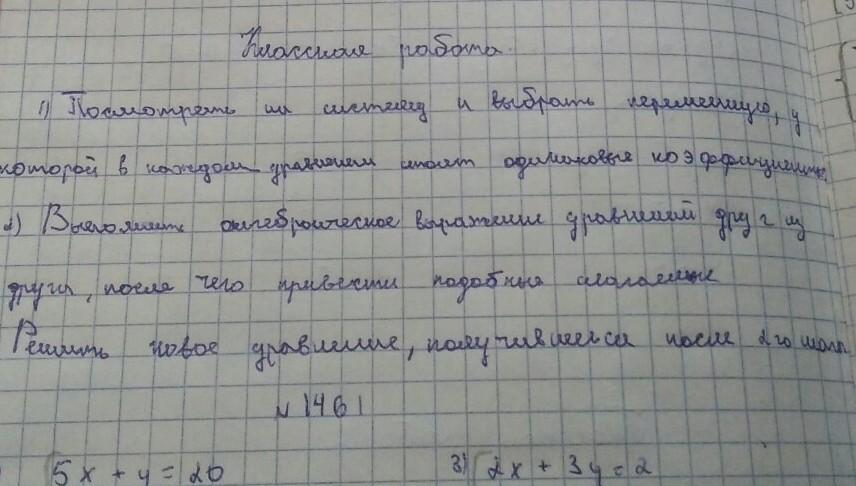 Классная работа.
1) Посмотреть на систему и выбрать переменную, у
которой в каждом уравнении стоят одинаковые коэффициенты.
2) Выполнить алгебраическое выражение уравнений друг из
друга, после чего привести подобные слагаемые
Решить новое уравнение, получившееся после 2го шага
N 1461
5x + y = 20 3) 2x + 3y = 2